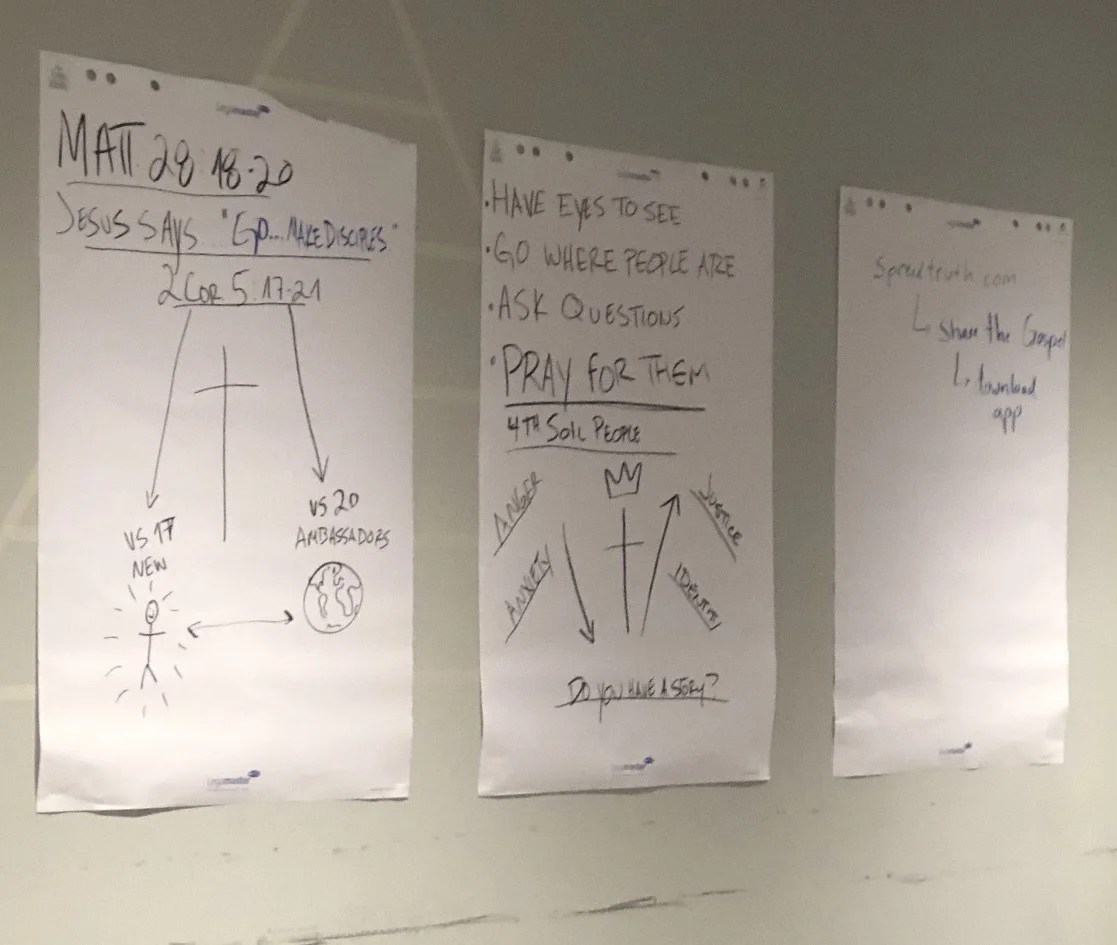 Legamaster
MATT 28 18-20
JESUS SAYS "GO... MAKE DISCIPLES"
2 COR 5:17-21
VS 17
NEW
VS 20
AMBASSADORS
Legamaster
• HAVE EYES TO SEE
• GO WHERE PEOPLE ARE
• ASK QUESTIONS
• PRAY FOR THEM
4TH SOIL PEOPLE
ANGER
ANXIETY
JUSTICE
IDENTITY
DO YOU HAVE A STORY?
Legamaster
Spreadtruth.com
share the Gospel
download
app